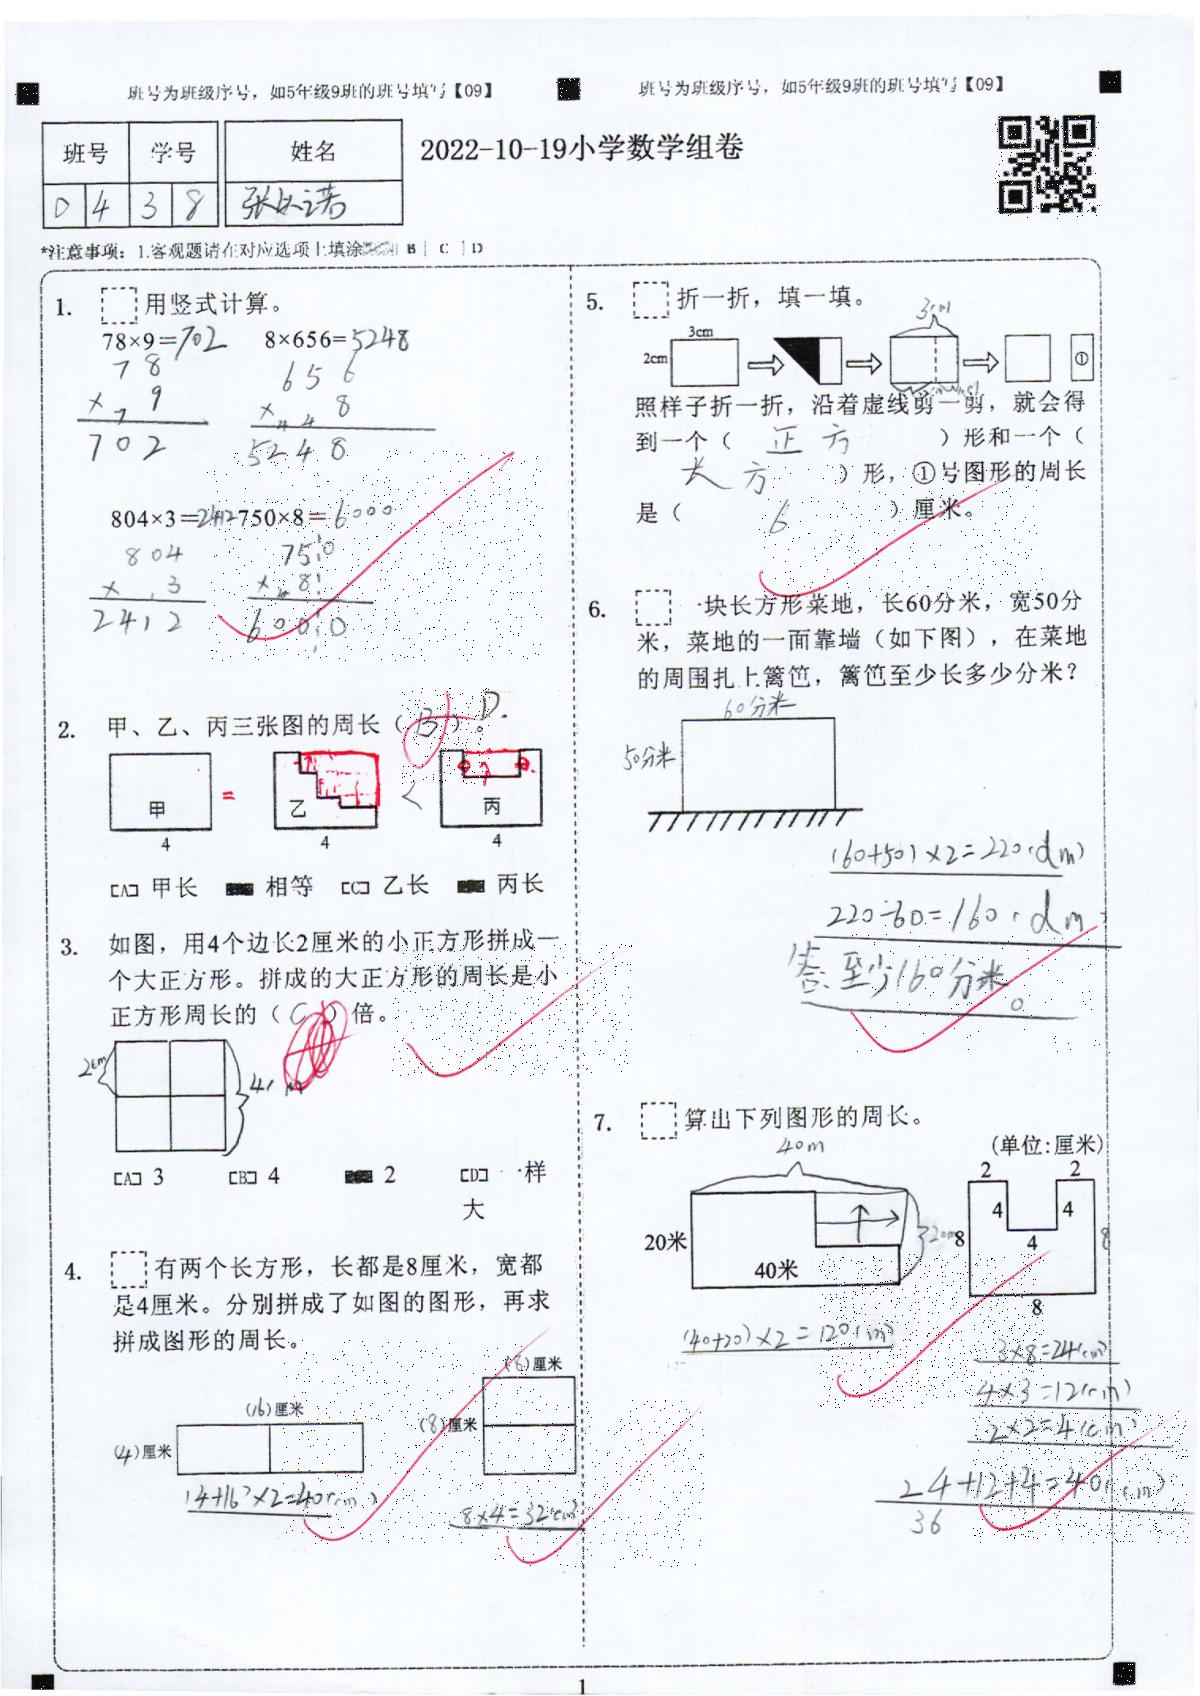 班号为班级序号，如5年级9班的班号填写【09】
班号为班级序号，如5年级9班的班号填写【09】
班号 学号 姓名
0 4 3 8
2022-10-19小学数学组卷
*注意事项：1.客观题请在对应选项上填涂 B C D
1. 用竖式计算。
78×9=702 8×656=5248
78
× 7 9
702
656
× 4 4 8
5248
804×3=2412 750×8=6000
804
× 1 3
2412
750
× 4 8
6000
2. 甲、乙、丙三张图的周长（ B ）。 D.
甲 = 乙 < 丙
4 4 4
[A] 甲长 相等 [C] 乙长 丙长
3. 如图，用4个边长2厘米的小正方形拼成一
个大正方形。拼成的大正方形的周长是小
正方形周长的（ C ）倍。
2cm
[A] 3 [B] 4 2 [D] 一样
大
4. 有两个长方形，长都是8厘米，宽都
是4厘米。分别拼成了如图的图形，再求
拼成图形的周长。
(16)厘米
(4)厘米
(4+16)×2=40(cm)
(8)厘米
(8)厘米
8×4=32(cm)
5. 折一折，填一填。
3cm
2cm
3cm
①
照样子折一折，沿着虚线剪一剪，就会得
到一个（ 正方 ）形和一个（
长方 ）形，①号图形的周长
是（ 6 ）厘米。
6. 一块长方形菜地，长60分米，宽50分
米，菜地的一面靠墙（如下图），在菜地
的周围扎上篱笆，篱笆至少长多少分米？
60分米
50分米
(60+50)×2=220(dm)
220-60=160(dm)
答：至少160分米。
7. 算出下列图形的周长。
(单位:厘米)
40m
20米
40米
(40+20)×2=120(m)
2 2
4 4
8 4 8
8
3×8=24(cm)
4×3=12(cm)
2×2=4(cm)
24+12+4=40(cm)
36
1